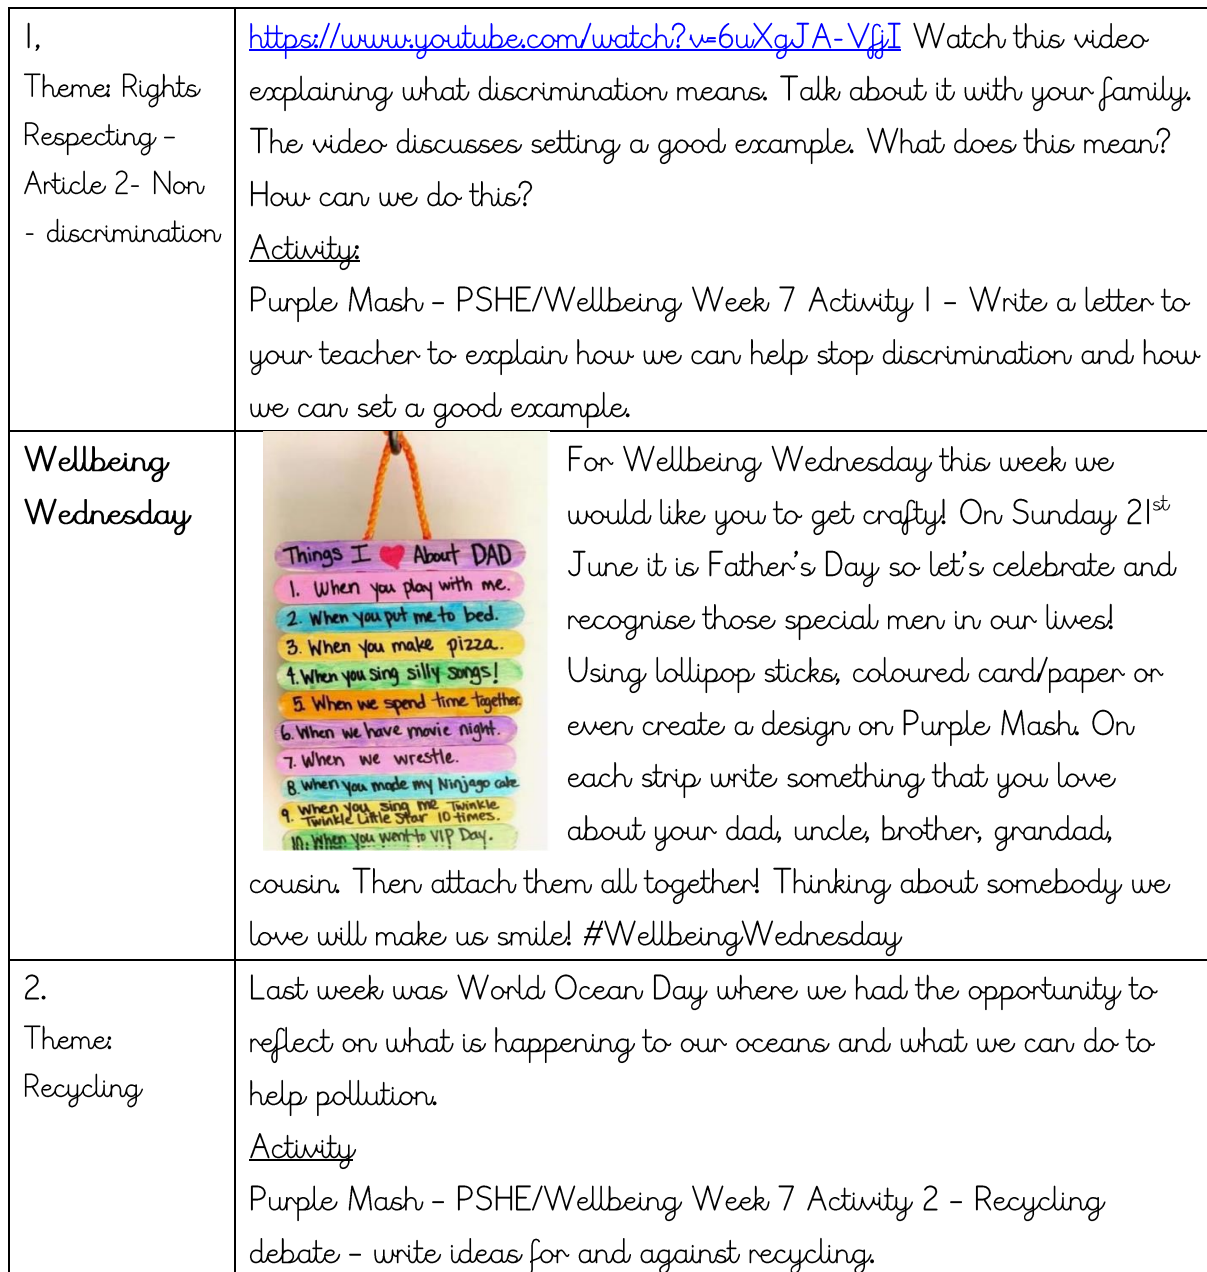 1,
Theme: Rights
Respecting –
Article 2- Non
- discrimination
https://www.youtube.com/watch?v=6uXgJA-VfjI Watch this video
explaining what discrimination means. Talk about it with your family.
The video discusses setting a good example. What does this mean?
How can we do this?
Activity:
Purple Mash – PSHE/Wellbeing Week 7 Activity 1 – Write a letter to
your teacher to explain how we can help stop discrimination and how
we can set a good example.
Wellbeing
Wednesday
Things I ❤ About DAD
1. When you play with me.
2. When you put me to bed.
3. When you make pizza.
4. When you sing silly songs!
5. When we spend time together.
6. When we have movie night.
7. When we wrestle.
8. When you made my Ninjago cake
9. When you sing me Twinkle
Twinkle Little Star 10 times.
10. When you went to VIP Day.
For Wellbeing Wednesday this week we
would like you to get crafty! On Sunday 21st
June it is Father's Day so let's celebrate and
recognise those special men in our lives!
Using lollipop sticks, coloured card/paper or
even create a design on Purple Mash. On
each strip write something that you love
about your dad, uncle, brother, grandad,
cousin. Then attach them all together! Thinking about somebody we
love will make us smile! #WellbeingWednesday
2.
Theme:
Recycling
Last week was World Ocean Day where we had the opportunity to
reflect on what is happening to our oceans and what we can do to
help pollution.
Activity
Purple Mash – PSHE/Wellbeing Week 7 Activity 2 – Recycling
debate – write ideas for and against recycling.